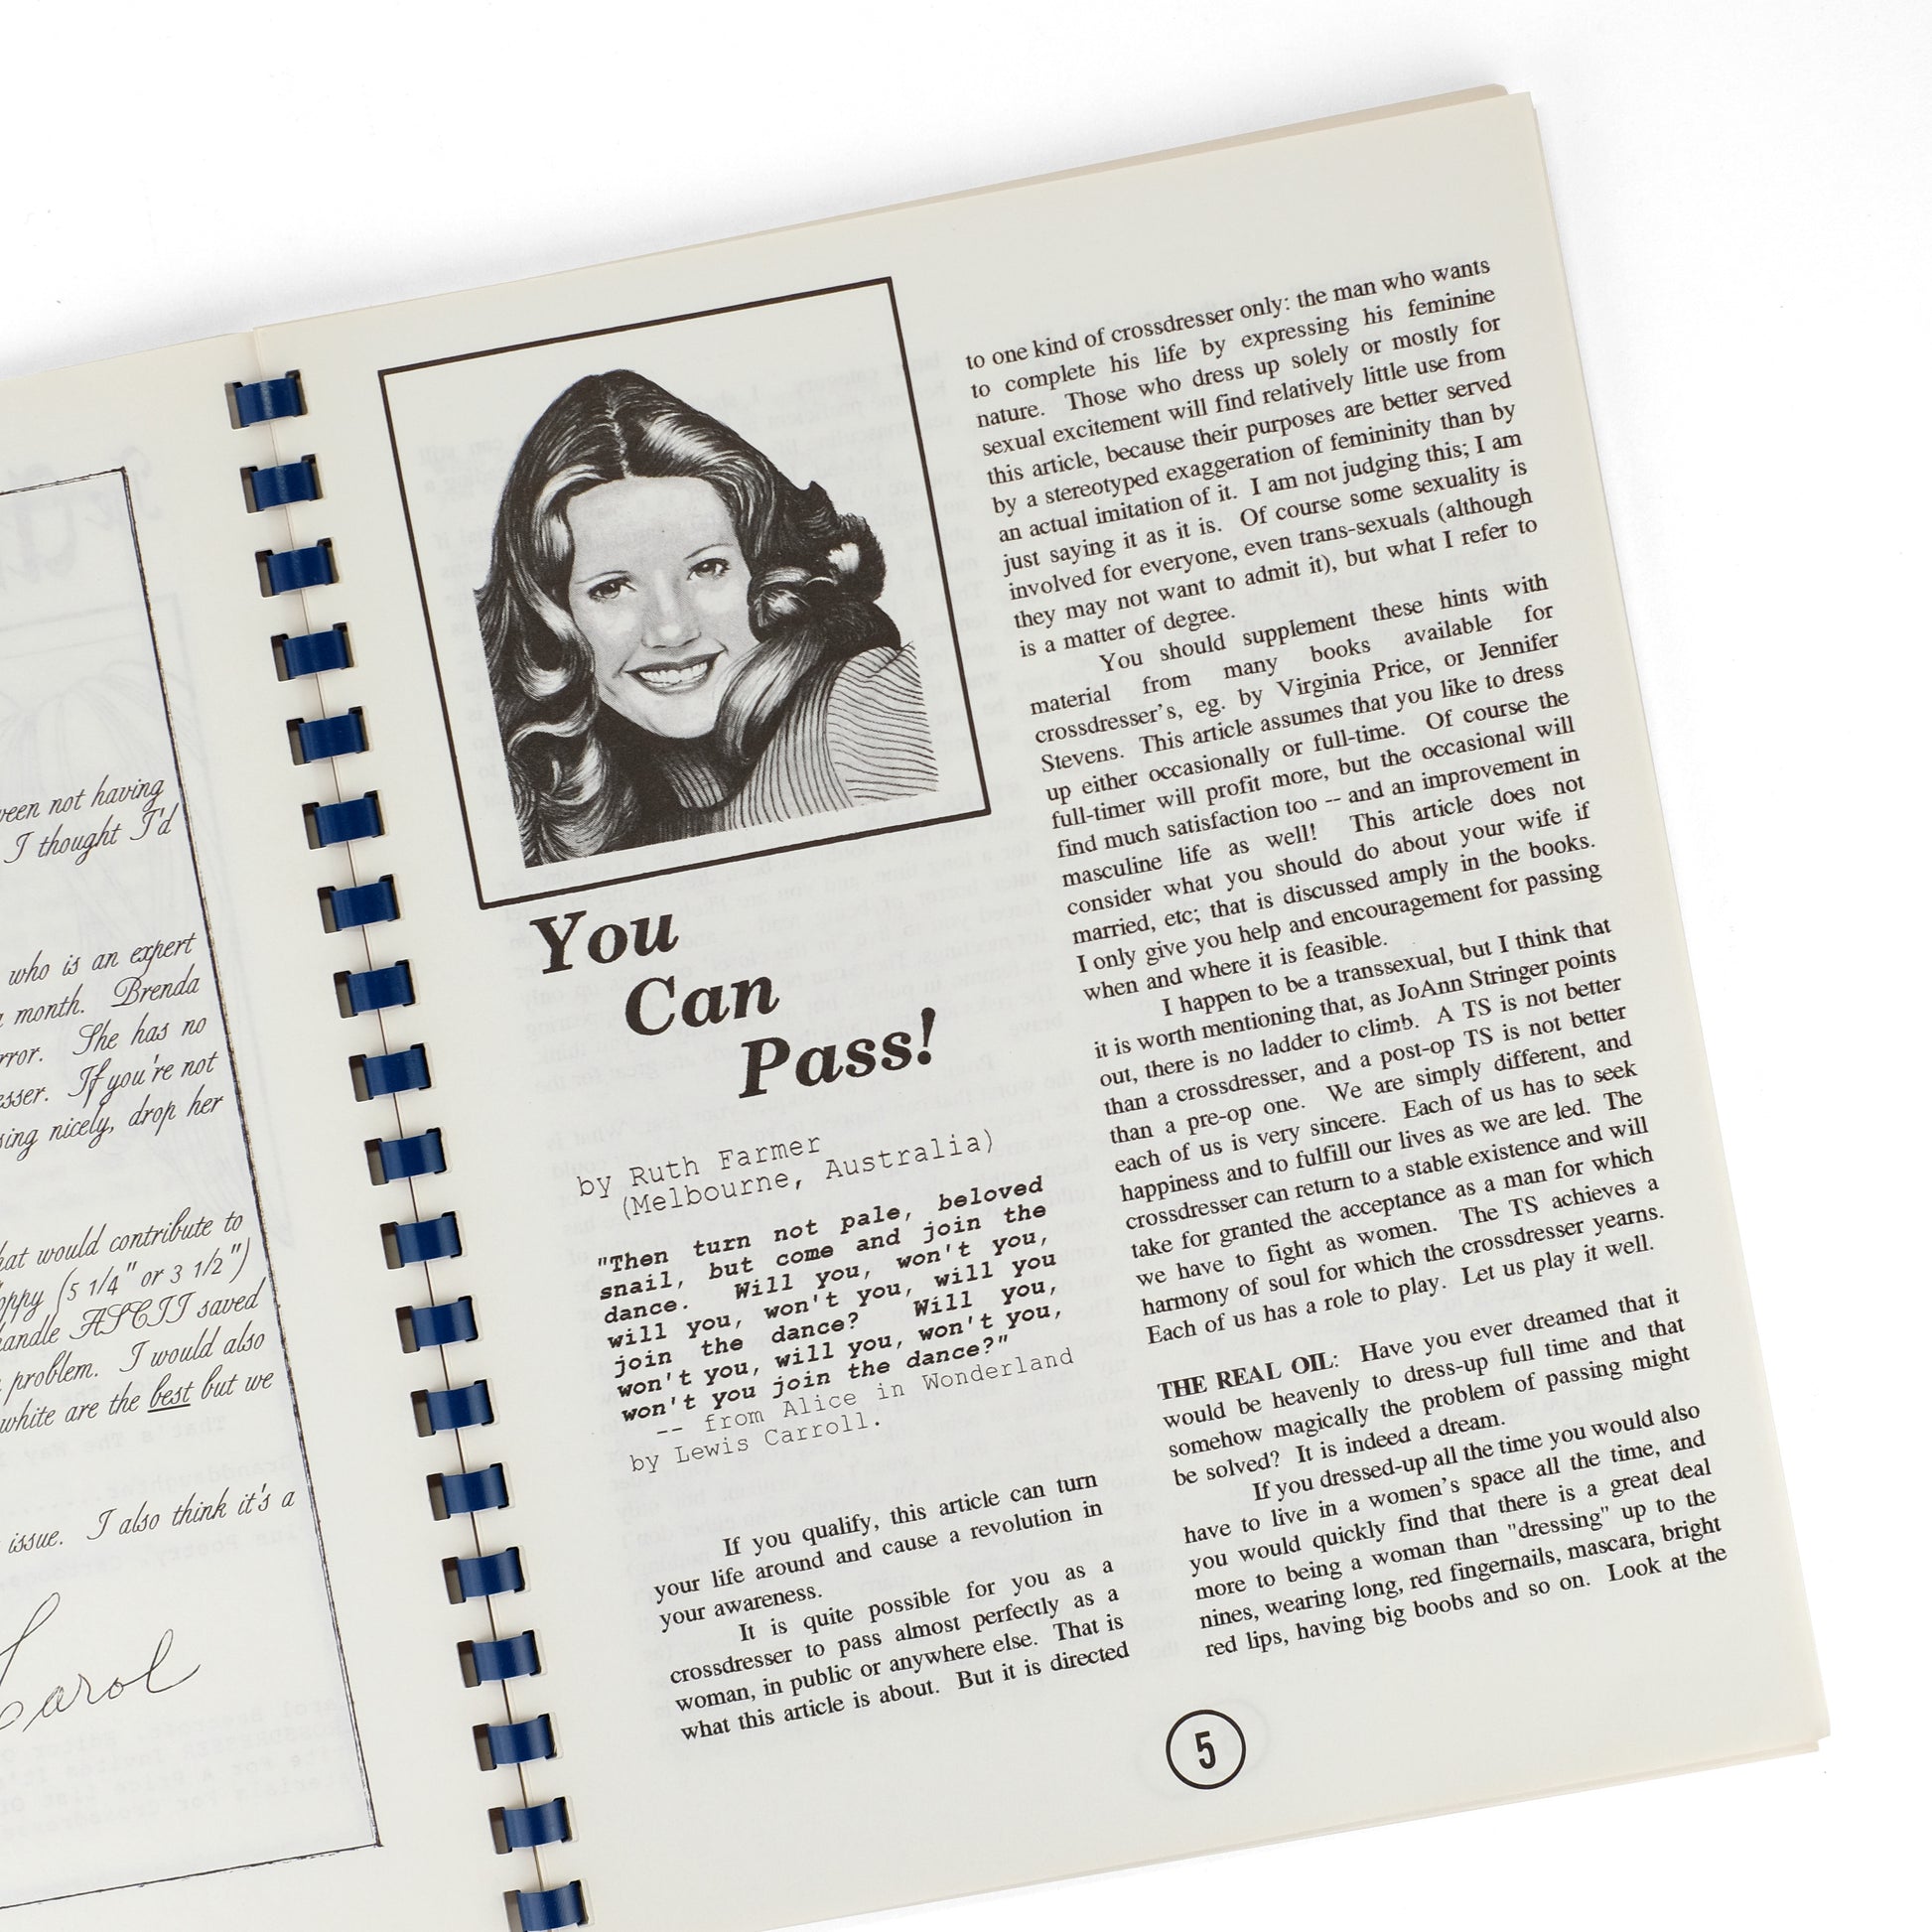 ween not having
I thought I'd
who is an expert
month. Brenda
She has no
If you're not
nicely, drop her
that would contribute to
(5 1/4" or 3 1/2")
handle ASCII saved
problem. I would also
white are the best but we
issue. I also think it's a
Carol
You
Can
Pass!
by Ruth Farmer
(Melbourne, Australia)
"Then turn not pale, beloved
snail, but come and join the
dance. Will you, won't you,
will you, won't you, will you
join the dance? Will you,
won't you, will you, won't you,
won't you join the dance?"
-- from Alice in Wonderland
by Lewis Carroll.
If you qualify, this article can turn
your life around and cause a revolution in
your awareness.
It is quite possible for you as a
crossdresser to pass almost perfectly as a
woman, in public or anywhere else. That is
what this article is about. But it is directed
to one kind of crossdresser only: the man who wants
to complete his life by expressing his feminine
nature. Those who dress up solely or mostly for
sexual excitement will find relatively little use from
this article, because their purposes are better served
by a stereotyped exaggeration of femininity than by
an actual imitation of it. I am not judging this; I am
just saying it as it is. Of course some sexuality is
involved for everyone, even trans-sexuals (although
they may not want to admit it), but what I refer to
is a matter of degree.
You should supplement these hints with
material from many books available for
crossdresser's, eg. by Virginia Price, or Jennifer
Stevens. This article assumes that you like to dress
up either occasionally or full-time. Of course the
full-timer will profit more, but the occasional will
find much satisfaction too -- and an improvement in
masculine life as well! This article does not
consider what you should do about your wife if
married, etc; that is discussed amply in the books.
I only give you help and encouragement for passing
when and where it is feasible.
I happen to be a transsexual, but I think that
it is worth mentioning that, as JoAnn Stringer points
out, there is no ladder to climb. A TS is not better
than a crossdresser, and a post-op TS is not better
than a pre-op one. We are simply different, and
each of us is very sincere. Each of us has to seek
happiness and to fulfill our lives as we are led. The
crossdresser can return to a stable existence and will
take for granted the acceptance as a man for which
we have to fight as women. The TS achieves a
harmony of soul for which the crossdresser yearns.
Each of us has a role to play. Let us play it well.
THE REAL OIL: Have you ever dreamed that it
would be heavenly to dress-up full time and that
somehow magically the problem of passing might
be solved? It is indeed a dream.
If you dressed-up all the time you would also
have to live in a women's space all the time, and
you would quickly find that there is a great deal
more to being a woman than "dressing" up to the
nines, wearing long, red fingernails, mascara, bright
red lips, having big boobs and so on. Look at the
5